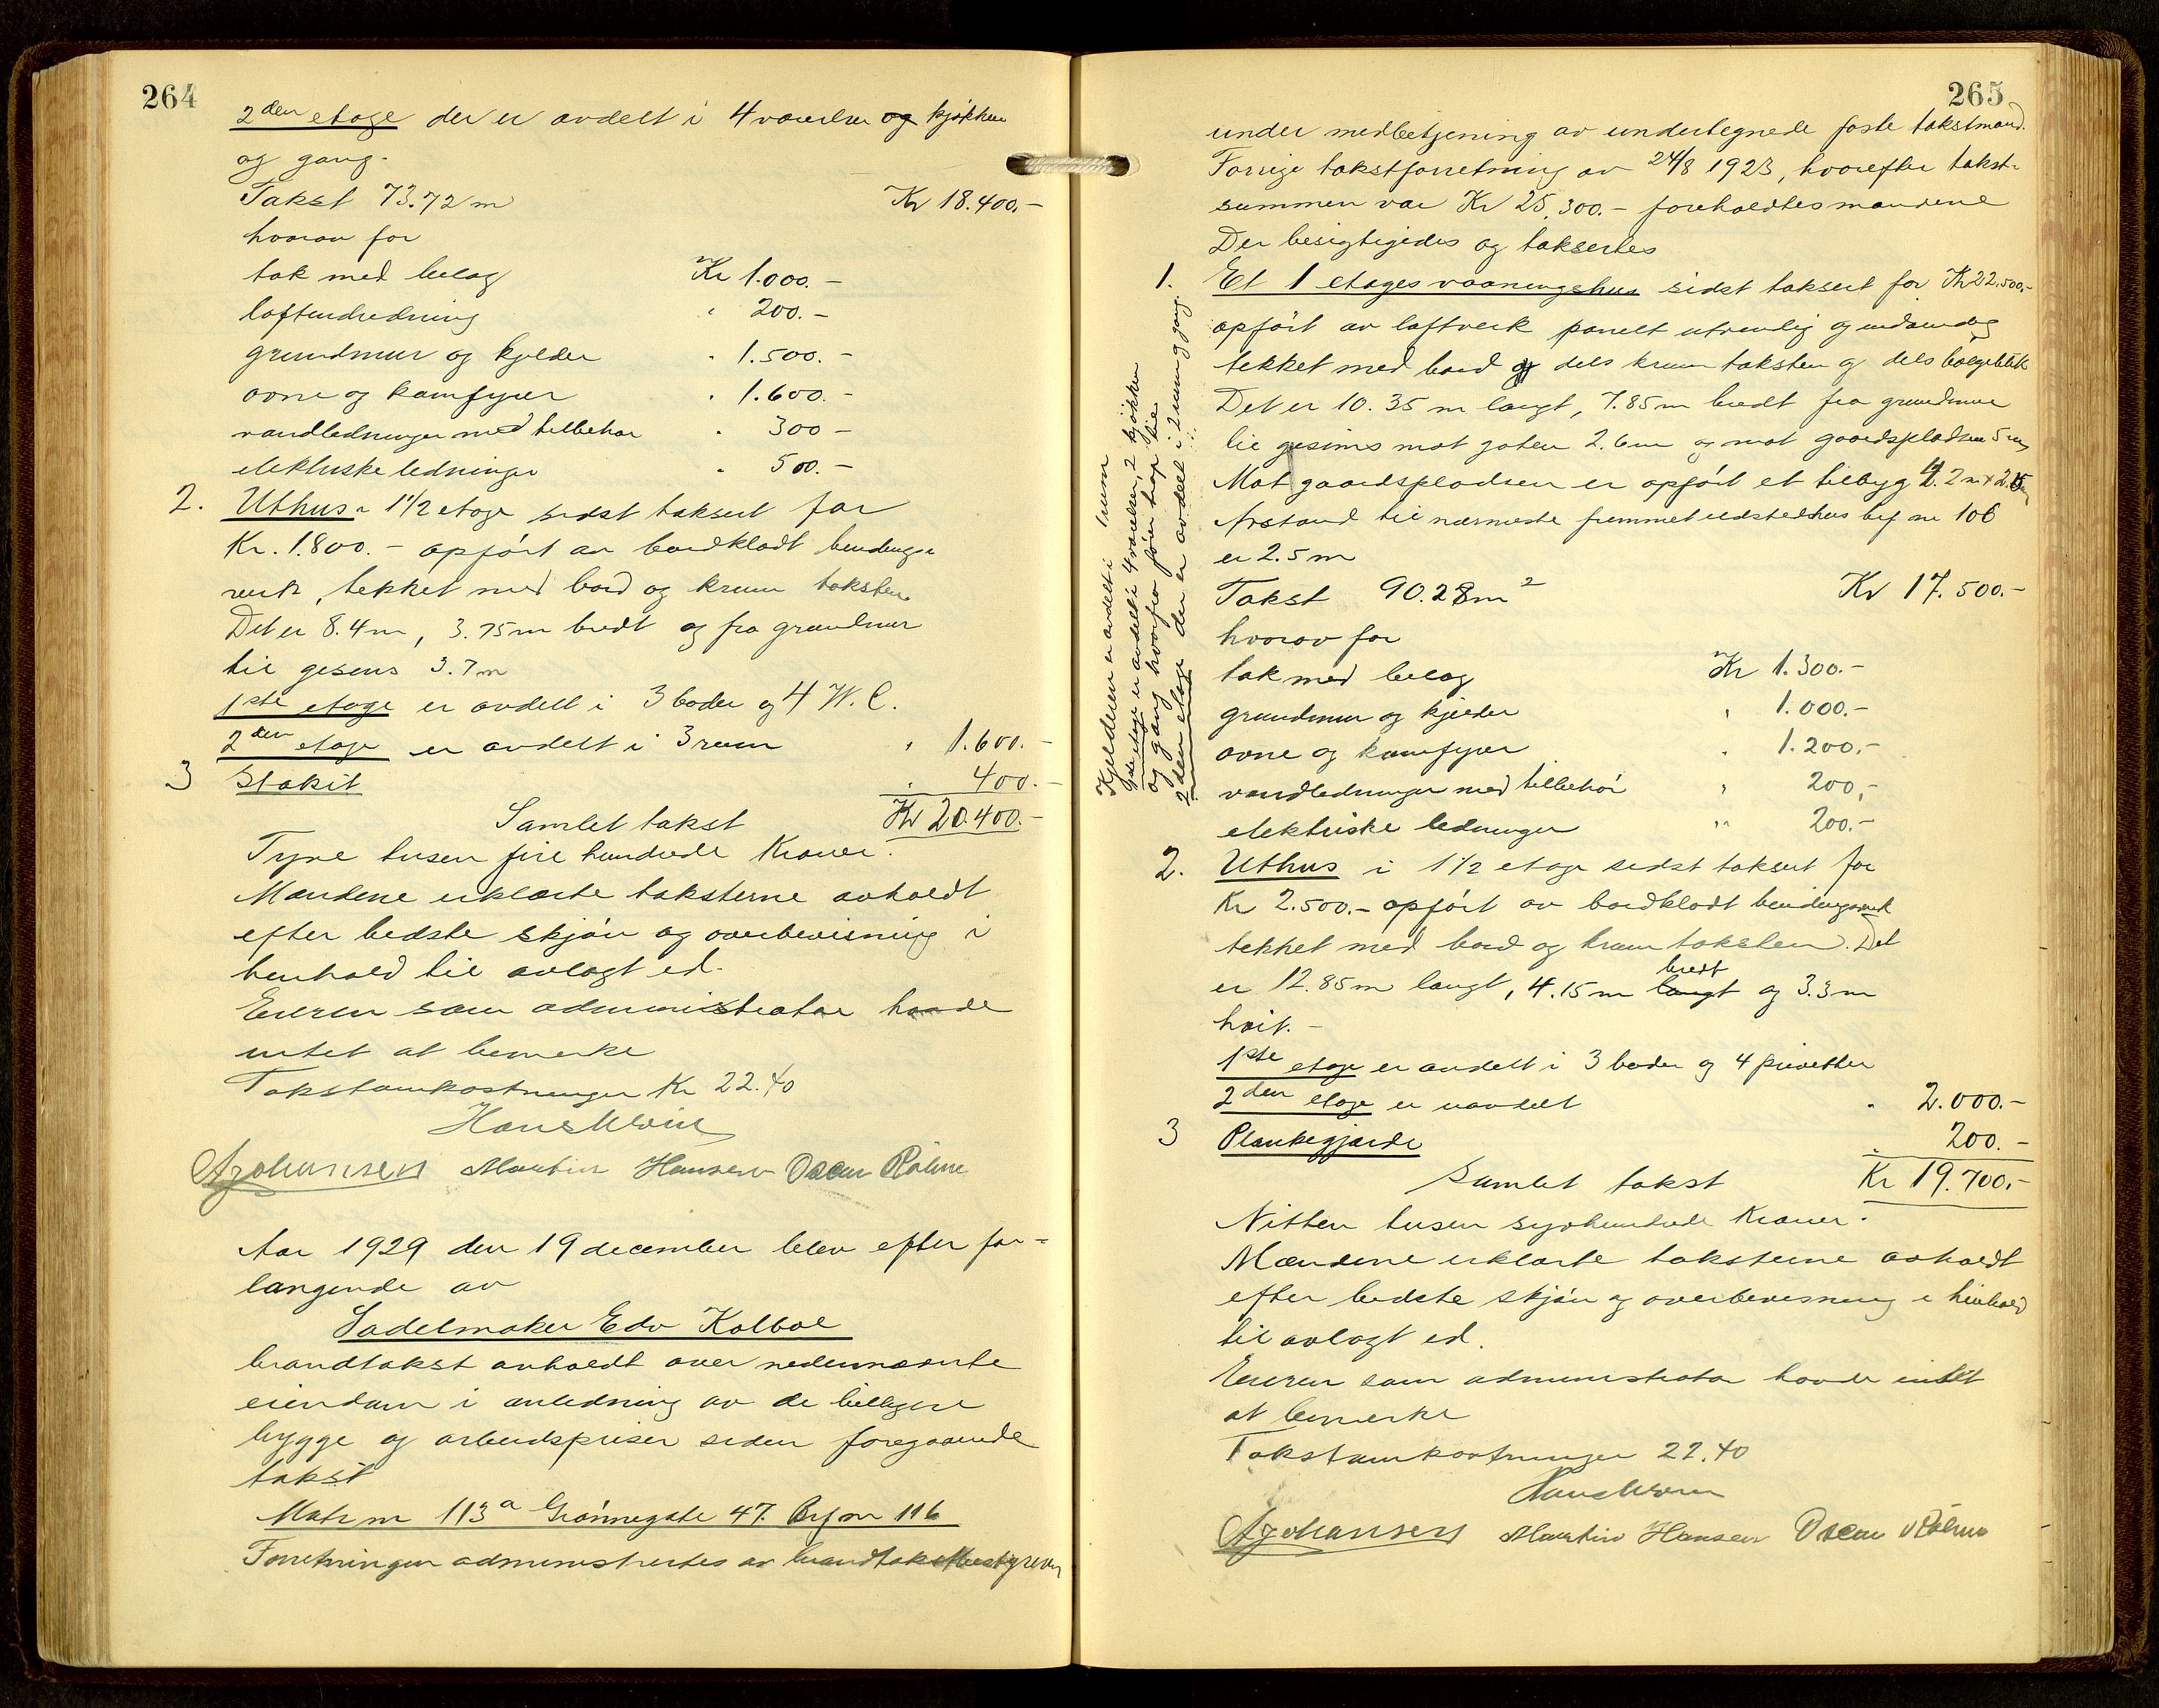 264
2den etage der er avdelt i 4 værelser og kjøkken
og gang.
Takst 73.72 m Kr 18.400.-
hvorav for
tak med belag Kr 1.000.-
loftindredning " 200.-
grundmur og kjelder " 1.500.-
ovne og komfyrer " 1.600.-
vandledninger med tilbehør " 300 -
elektriske ledninger " 500.-
2. Uthus i 1 1/2 etage sidst taksert for
Kr. 1.800.- opført av bordklædt bindings-
verk, tekket med bord og krum taksten
Det er 8.4 m, 3.75 m bredt og fra grundmur
til gesims 3.7 m
1ste etage er avdelt i 3 boder og 4 W.C.
2den etage er avdelt i 3 rum " 1.600.-
3 Stakit " 400.-
Samlet takst Kr 20.400.-
Tyve tusen fire hundrede Kroner.
Mændene erklærte taksterne avholdt
efter bedste skjøn og overbevisning i
henhold til avlagt ed.
Eieren som administrator havde
intet at bemerke
Takstomkostninger Kr 22.40
Hans
A Johansen Martin Hansen Oscar
Aar 1929 den 19 december blev efter for-
langende av
Sadelmaker Edv Kolboe
brandtakst avholdt over nedennævnte
eiendom i anledning av de billigere
bygge og arbeidspriser siden foregaaende
takst
Matr nr 113a Grønnegate 47. Byf nr 116
Forretningen administrertes av brandtakstbestyreren
265
under medbetjening av undertegnede faste takstmænd.
Forrige takstforretning av 24/8 1923, hvorefter takst-
summen var Kr 25.300.- foreholdtes mændene
Der besigtigedes og taksertes
1. Et 1 etages vaaningshus sidst taksert for Kr 22.500.-
opført av laftverk panelt utvendig og indvendig
tekket med bord og dels krum taksten og dels bølgeblik
Det er 10.35 m langt, 7.85 m bredt fra grundmur
til gesims mot gaten 2.6 m og mot gaardspladsen 5 m
Mot gaardspladsen er opført et tilbyg 4.2 m x 2.15 m
Avstand til nærmeste fremmet ildstedhus byf nr 106
er 2.5 m
Kjelderen er avdelt i 1 rum
1ste etage er avdelt i 4 værelser, 2 kjøkken
og gang hvorfra fører trap til
2den etage der er avdelt i 2 rum og gang.
Takst 90.28 m2 Kr 17.500.-
hvorav for
tak med belag Kr 1.300.-
grundmur og kjelder " 1.000.-
ovne og komfyrer " 1.200.-
vandledninger med tilbehør " 200,-
elektriske ledninger " 200.-
2. Uthus i 1 1/2 etage sidst taksert for
Kr 2.500.- opført av bordklædt bindingsverk
tekket med bord og krum taksten. Det
er 12.85 m langt, 4.15 m langt bredt og 3.3 m
høit.-
1ste etage er avdelt i 3 boder og 4 privetter
2den etage er uavdelt " 2.000.-
3 Plankegjærde " 200.-
Samlet takst Kr 19.700.-
Nitten tusen syvhundrede Kroner.
Mændene erklærte taksterne avholdt
efter bedste skjøn og overbevisning i henhold
til avlagt ed.
Eieren som administrator havde intet
at bemerke
Takstomkostninger 22.40
Hans
A Johansen Martin Hansen Oscar